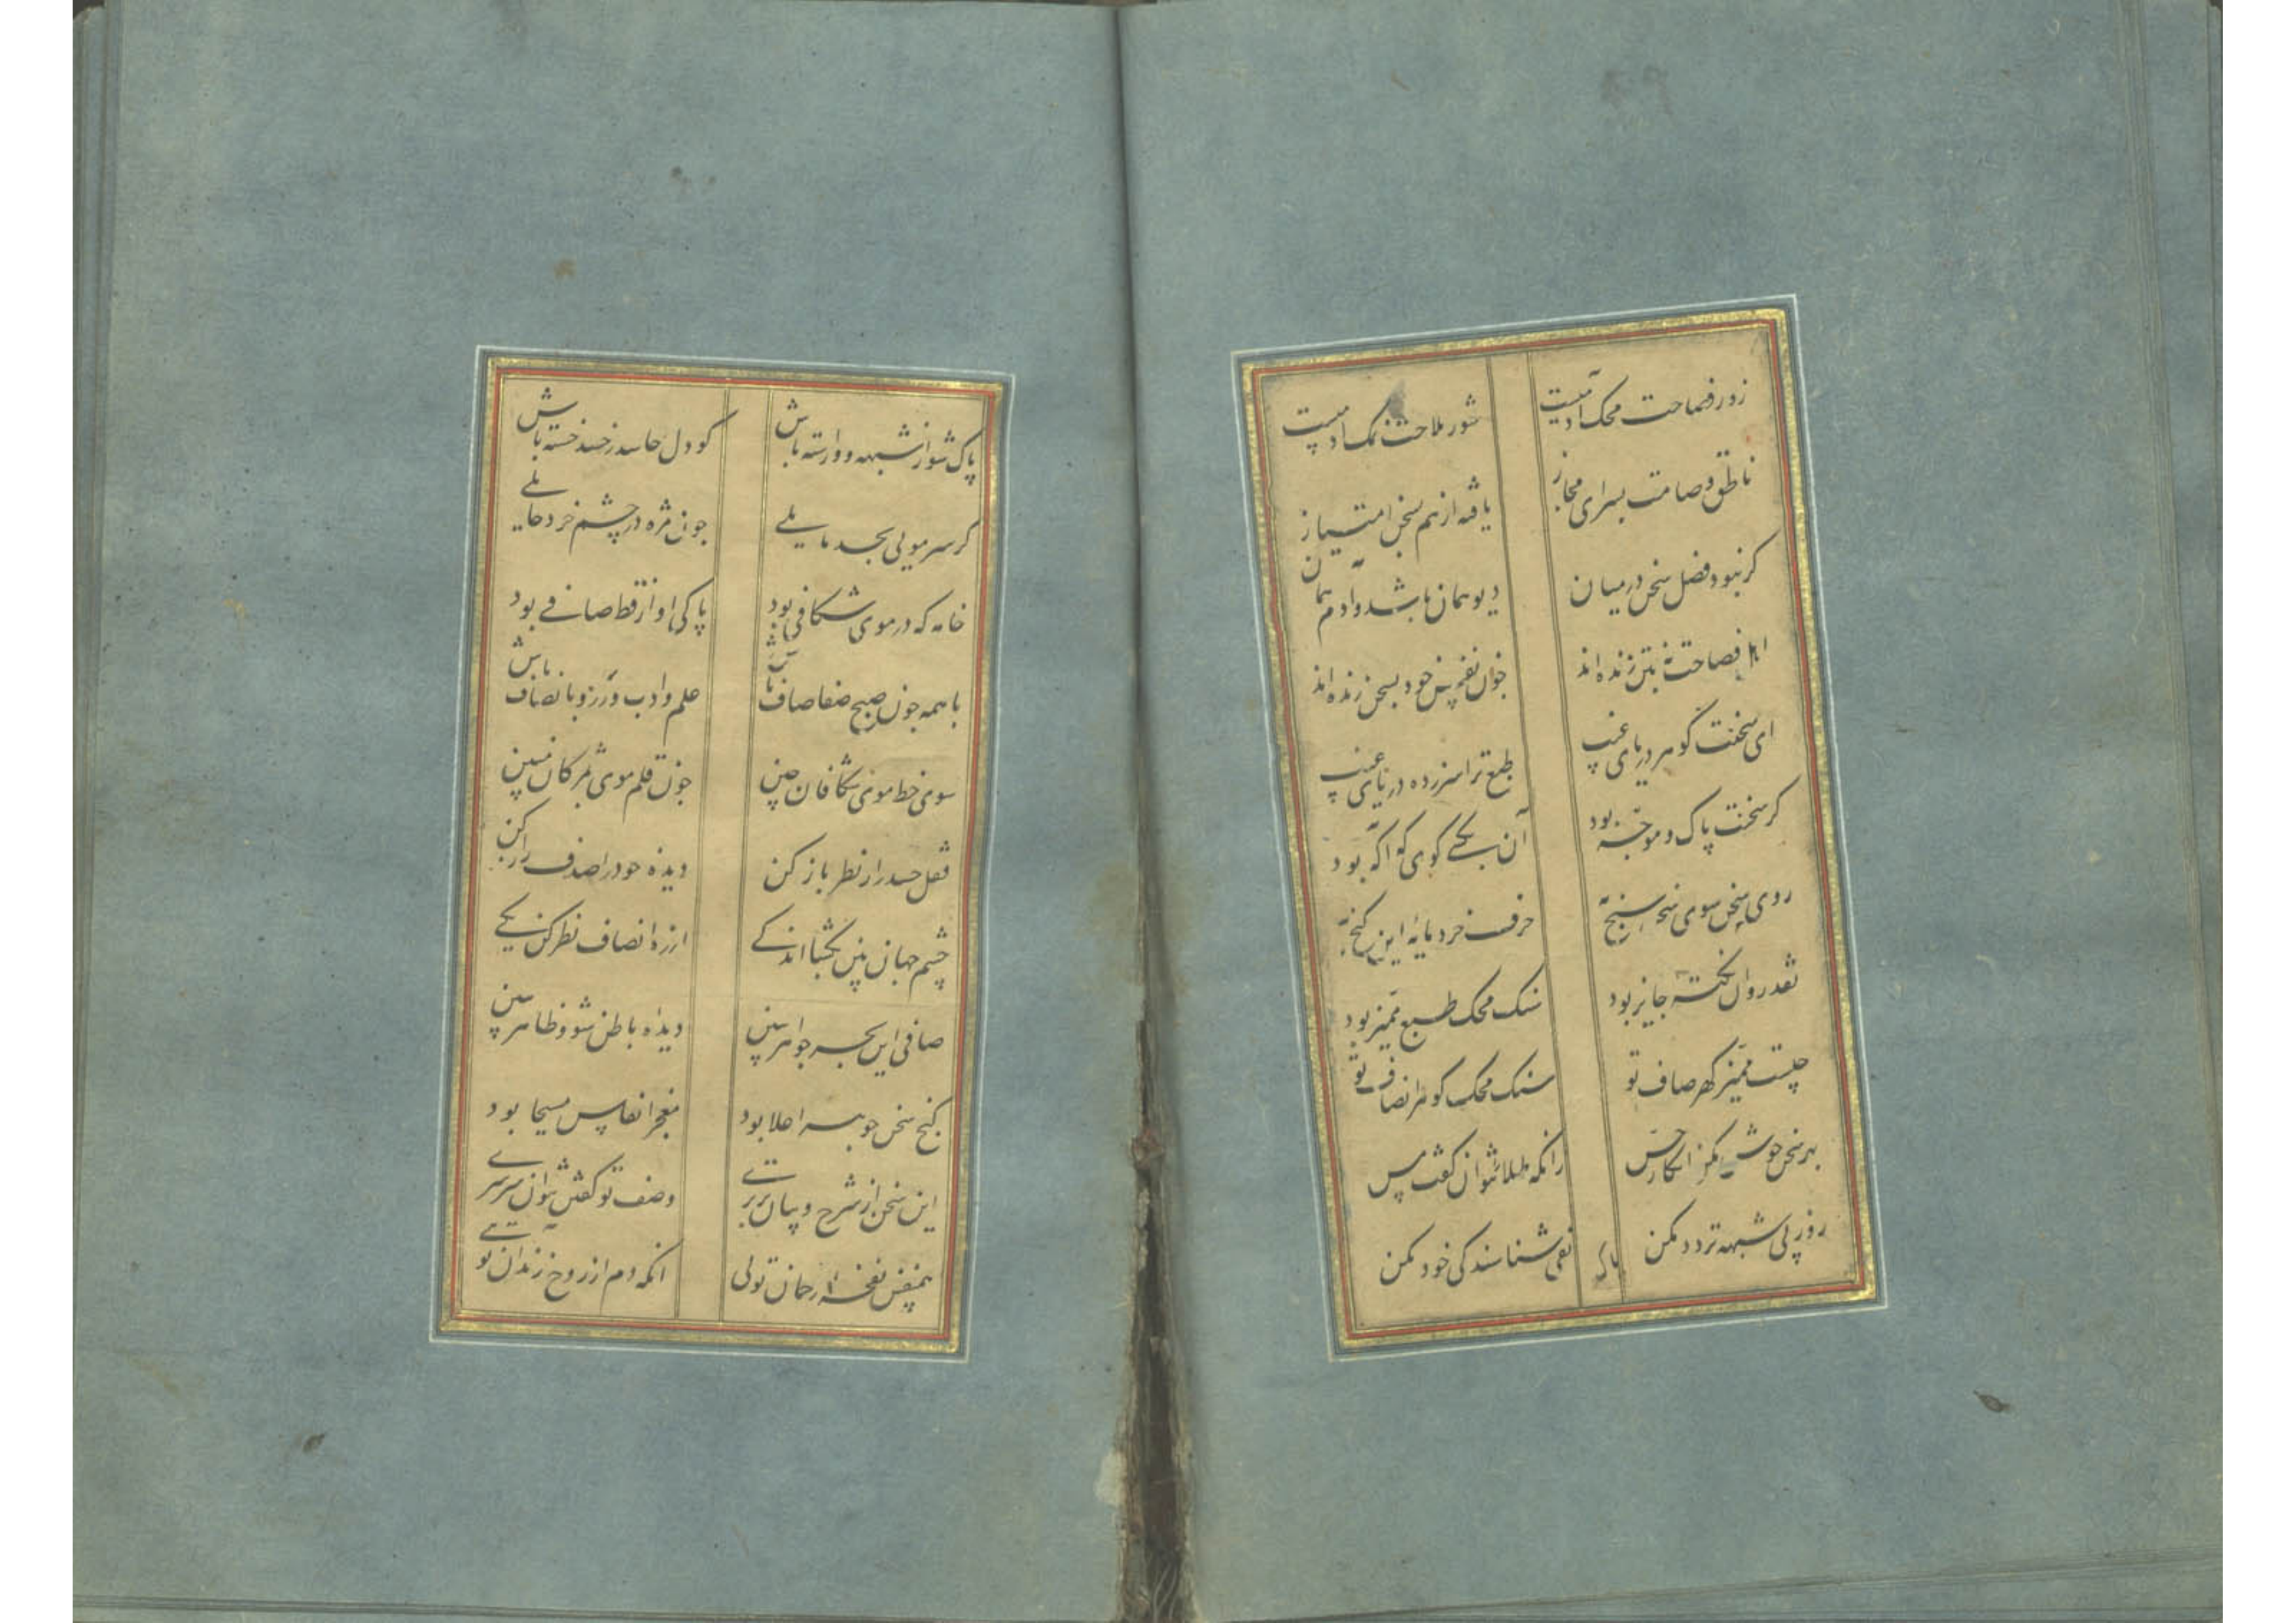 زور فصاحت محک آدمیست شور ملاحت نمک آدمیست
ناطق و صامت بسرای مجاز یافته از هم بسخن امتیاز
کر نبود فضل سخن درمیان دیو همان باشد و آدم همان
اهل فصاحت نه بتن زنده اند چون نفس خود بسخن زنده اند
ای سخنت گوهر دریای غیب طبع ترا سر زده در پای غیب
کر سخنت پاک و موجه بود آن بکسی کوی که آگه بود
روی سخن سوی سخن سنج به حرف خرد مایه این کنج به
نقد روان نکته جایز بود سنک محک طبع ممیز بود
چیست ممیز کهر صاف تو سنک محک گوهر انصاف تو
بر سخن خوش مکن انکار حس زانکه طلا نتوان کفت مس
روز پی شبهه تردد مکن نفی شناسندکی خود مکن
پاک
پاک شو از شبهه و وارسته باش کو دل حاسد ز حسد خسته باش
کر سر مویی بحسد مایلی چون مژه در چشم خرد حایلی
خامه که در موی شکافی بود پاکی او از قط صافی بود
با همه چون صبح صفا صاف باش علم و ادب ورز و بانصاف باش
سوی خط موی شکافان چین چون قلم موی بمژکان مبین
قفل حسد را ز نظر باز کن دیده خود را صدف راز کن
چشم جهان بین بکشا اندکی از ره انصاف نظر کن یکی
صافی این بحر جواهر ببین دیده باطن شو و ظاهر ببین
کنج سخن جوهر اعلا بود معجز انفاس مسیحا بود
این سخن از شرح و بیان برتری وصف تو کفتن نتوان سرسری
همنفس نفخه رحمان تویی آنکه دم از روح زند آن تویی